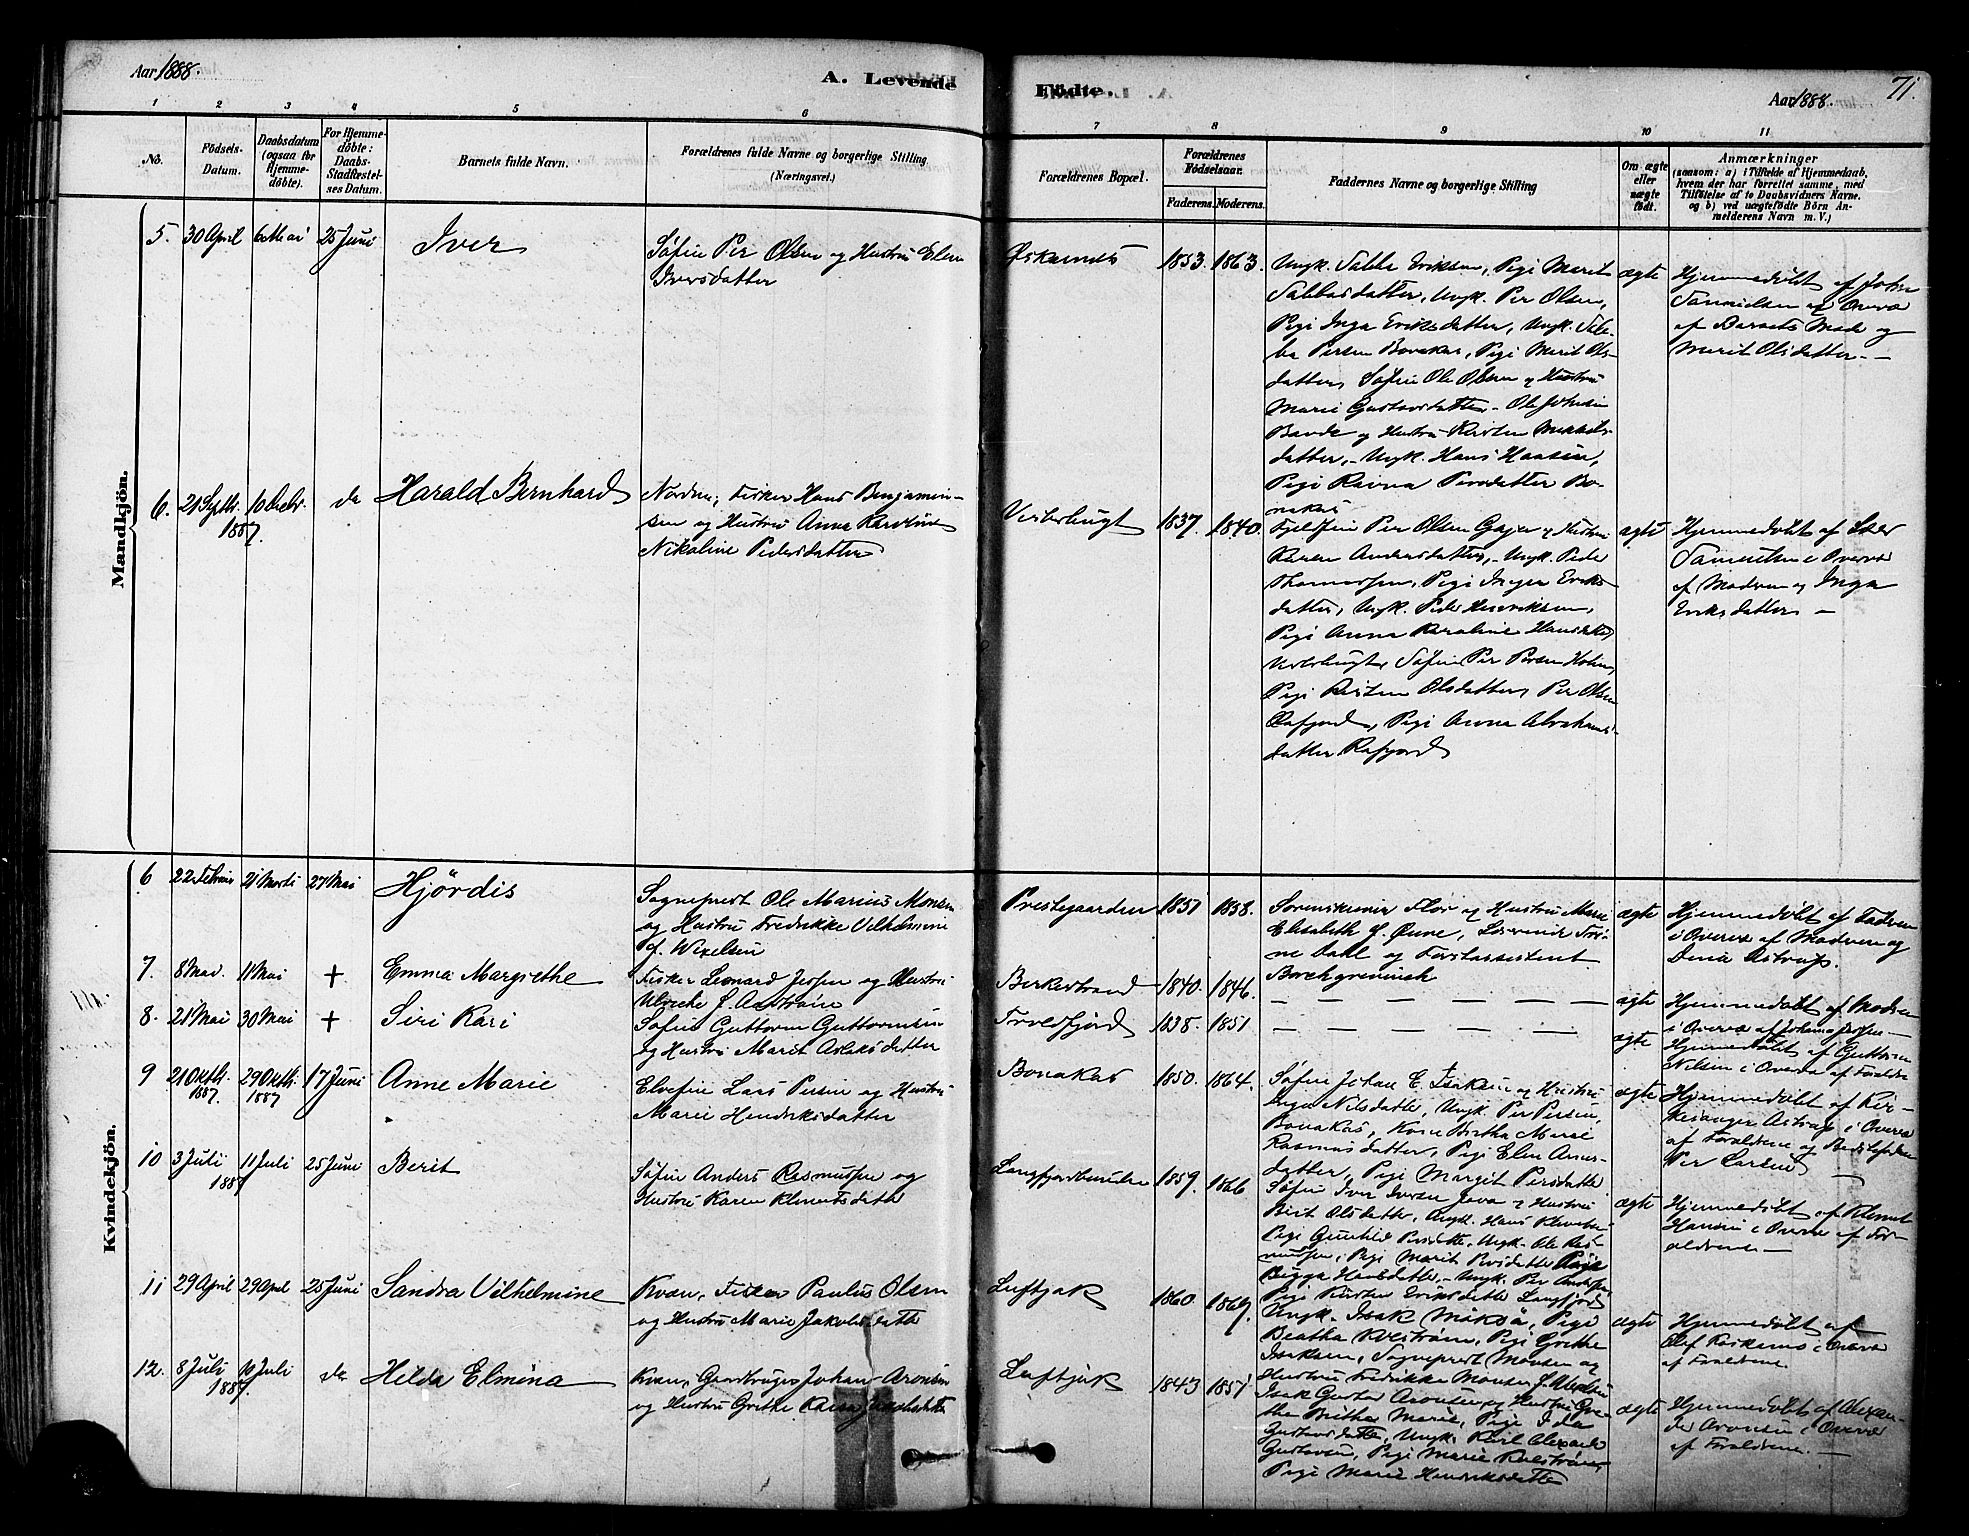 Aar 1888.
A. Levende
Födte.
Aar 1888.
71.
1 2 3 4 5 6
7 8 9 10 11
No.
Födsels-
Datum.
Daabsdatum
(ogsaa for
Hjemme-
døbte).
For Hjemme-
døbte:
Daabs-
Stadfæstel-
ses Datum.
Barnets fulde Navn.
Forældrenes fulde Navne og borgerlige Stilling
(Næringsvei.)
Forældrenes Bopæl.
Forældrenes
Födselsaar.
Faderens. Moderens.
Faddernes Navne og borgerlige Stilling
Om ægte
eller
uægte
födt.
Anmærkninger
(saasom: a) i Tilfælde af Hjemmedaab,
hvem der har forrettet samme, med
Tilföielse af to Daabsvidners Navne.
og b) ved uægtefödte Börn An-
melderens Navn m. V.)
Mandkjön.
5. 30 April 6 Mai 25 Juni Iver
Søfin Per Olsen og Hustru Elen
Iversdatter
1853. 1863.
Ungk. Sabba Eriksen, Pige Marit
Sabbasdatter, Ungk. Per Olsen,
Pige Inga Eriksdatter, Ungk. Sab-
ba Persen Bonakas, Pige Marit Ols-
datter, Søfin Ole Olsen og Hustru
Marie Gustavsdatter, Ole Johnsen
og Hustru Kirsten Mikkels-
datter, Ungk. Hans Hansen,
Pige Ravna Persdatter Bo-
nakas
ægte
Hjemmedøbt af John
Samuelsen i Overvær
af Barnets Moder og
Marit Olsdatter.
6. 21 Septb. 1887 10 Decbr. do Harald Bernhard
Nordm., Fisker Hans Benjamin-
sen og Hustru Anna Karoline
Nikoline Pedersdatter
Vesterbugt 1837. 1840.
Fjeldfin Per Olsen Gaja og Hustru
Karen Andersdatter, Ungk. Peder
Thomassen, Pige Inga Eriks-
datter, Ungk. Peder Henriksen,
Pige Anna Karoline Hansdatter
Vesterbugt, Søfin Per Persen Holm,
Pige Kirsten Olsdatter, Per Olsen
Rafjord, Pige Anna Abrahams-
datter Rafjord
ægte
Hjemmedøbt af
i Overvær
af Moderen og Inga
Eriksdatter
Kvindekjön.
6 22 Februar 21 Marts 27 Mai Hjørdis
Sogneprest Ole Marius Monsen
og Hustru Fredrikke Vilhelmine
f. Wexelsen
Prestegaarden 1851 1858.
Sorenskriver Flor og Hustru Marie
Elisabeth f. Øwre, Lærerinde Tri-
ne Dahl og Forstassistent
Borchgrevinck
ægte
Hjemmedøbt af Faderen
i Overvær af Moderen og
Dina Astrup.
7. 8 Mai 11 Mai + Emma Margrethe
Fisker Leonard Jessen og Hustru
Ulrikke f. Aastrøm
Birkestrand 1840. 1846.
ægte
Hjemmedøbt af Moderen
i Overvær af
8. 21 Mai 30 Mai + Siri Kari
Søfin Guttorm Guttormsen
og Hustru Marit Aslaksdatter
Troldfjord 1838. 1851
ægte
Hjemmedøbt af Guttorm
Nilsen i Overvær af Forældre
9 21 Oktb. 1887. 29 Oktb. 1887 17 Juni Anne Marie
Elvefin Lars Persen og Hustru
Marie Hendriksdatter
Bonakas 1850. 1864.
Søfin Johan E. Isaksen og Hustru
Inga Nilsdatter, Ungk. Per Persen
Bonakas, Kone Birtha Marie
Rasmusdatter, Pige Elen Anders-
datter, Pige Margit Persdatter
ægte
Hjemmedøbt af Kir-
kesanger Astrup i Overvær
af Forældrene og Bedstefaderen
Per Larsen
10 3 Juli 1887 11 Juli 25 Juni Berit
Søfin Anders Rasmussen og
Hustru Karen Klemetsdatter
Langfjordbunden 1859. 1866
Søfin Iver Iversen Java og Hustru
Berit Olsdatter, Ungk. Hans Klemetsen
Pige Gunhild Persdatter, Ungk. Ole Ras-
mussen, Pige Marit Persdatter, Pige
Bigga Hansdatter, Ungk. Per Andersen
Pige Kirsten Eriksdatter Langfjord
ægte
Hjemmedøbt af Klemet
Hansen i Overvær af For-
ældrene
11 29 April 29 April 25 Juni Sandra Vilhelmine
Kvæn, Fisker Paulus Olsen
og Hustru Marie Jakobsdatter
Luftjok 1860 1867.
Ungk. Isak, Pige
Beatha Kolstrøm, Pige Grethe
Isaksen, Sogneprest Monsen og
Hustru Fredrikke Monsen f. Wexelsen
ægte
Hjemmedøbt af
Olef i Overvær
af Forældrene.
12. 8 Juli 1887. 10 Juli do Hilda Elmina
Kvæn, Gaardbruger Johan Aronsen
og Hustru Grethe Kaisa Jakobsdatter
Luftjok 1843 1851
Isak Gustav Aronsen og Hustru Gre-
the Britha Marie, Pige Ida
Gustavsdatter, Ungk. Karl Alexander
Gustavsen, Pige Marie Kolstrøm,
Pige Marie Hendriksdatter
ægte
Hjemmedøbt af Alexan-
der Aronsen i Overvær
af Forældrene.